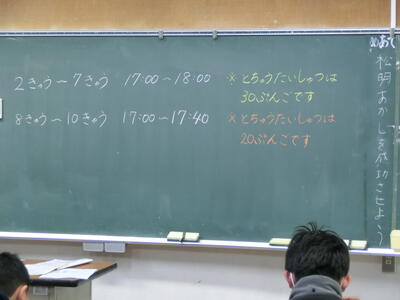 2きゅう〜7きゅう 17:00〜18:00 ※とちゅうたいしゅつは
30ぷんごです
8きゅう〜10きゅう 17:00〜17:40 ※とちゅうたいしゅつは
20ぷんごです
めあて
松明あかしを成功させよう